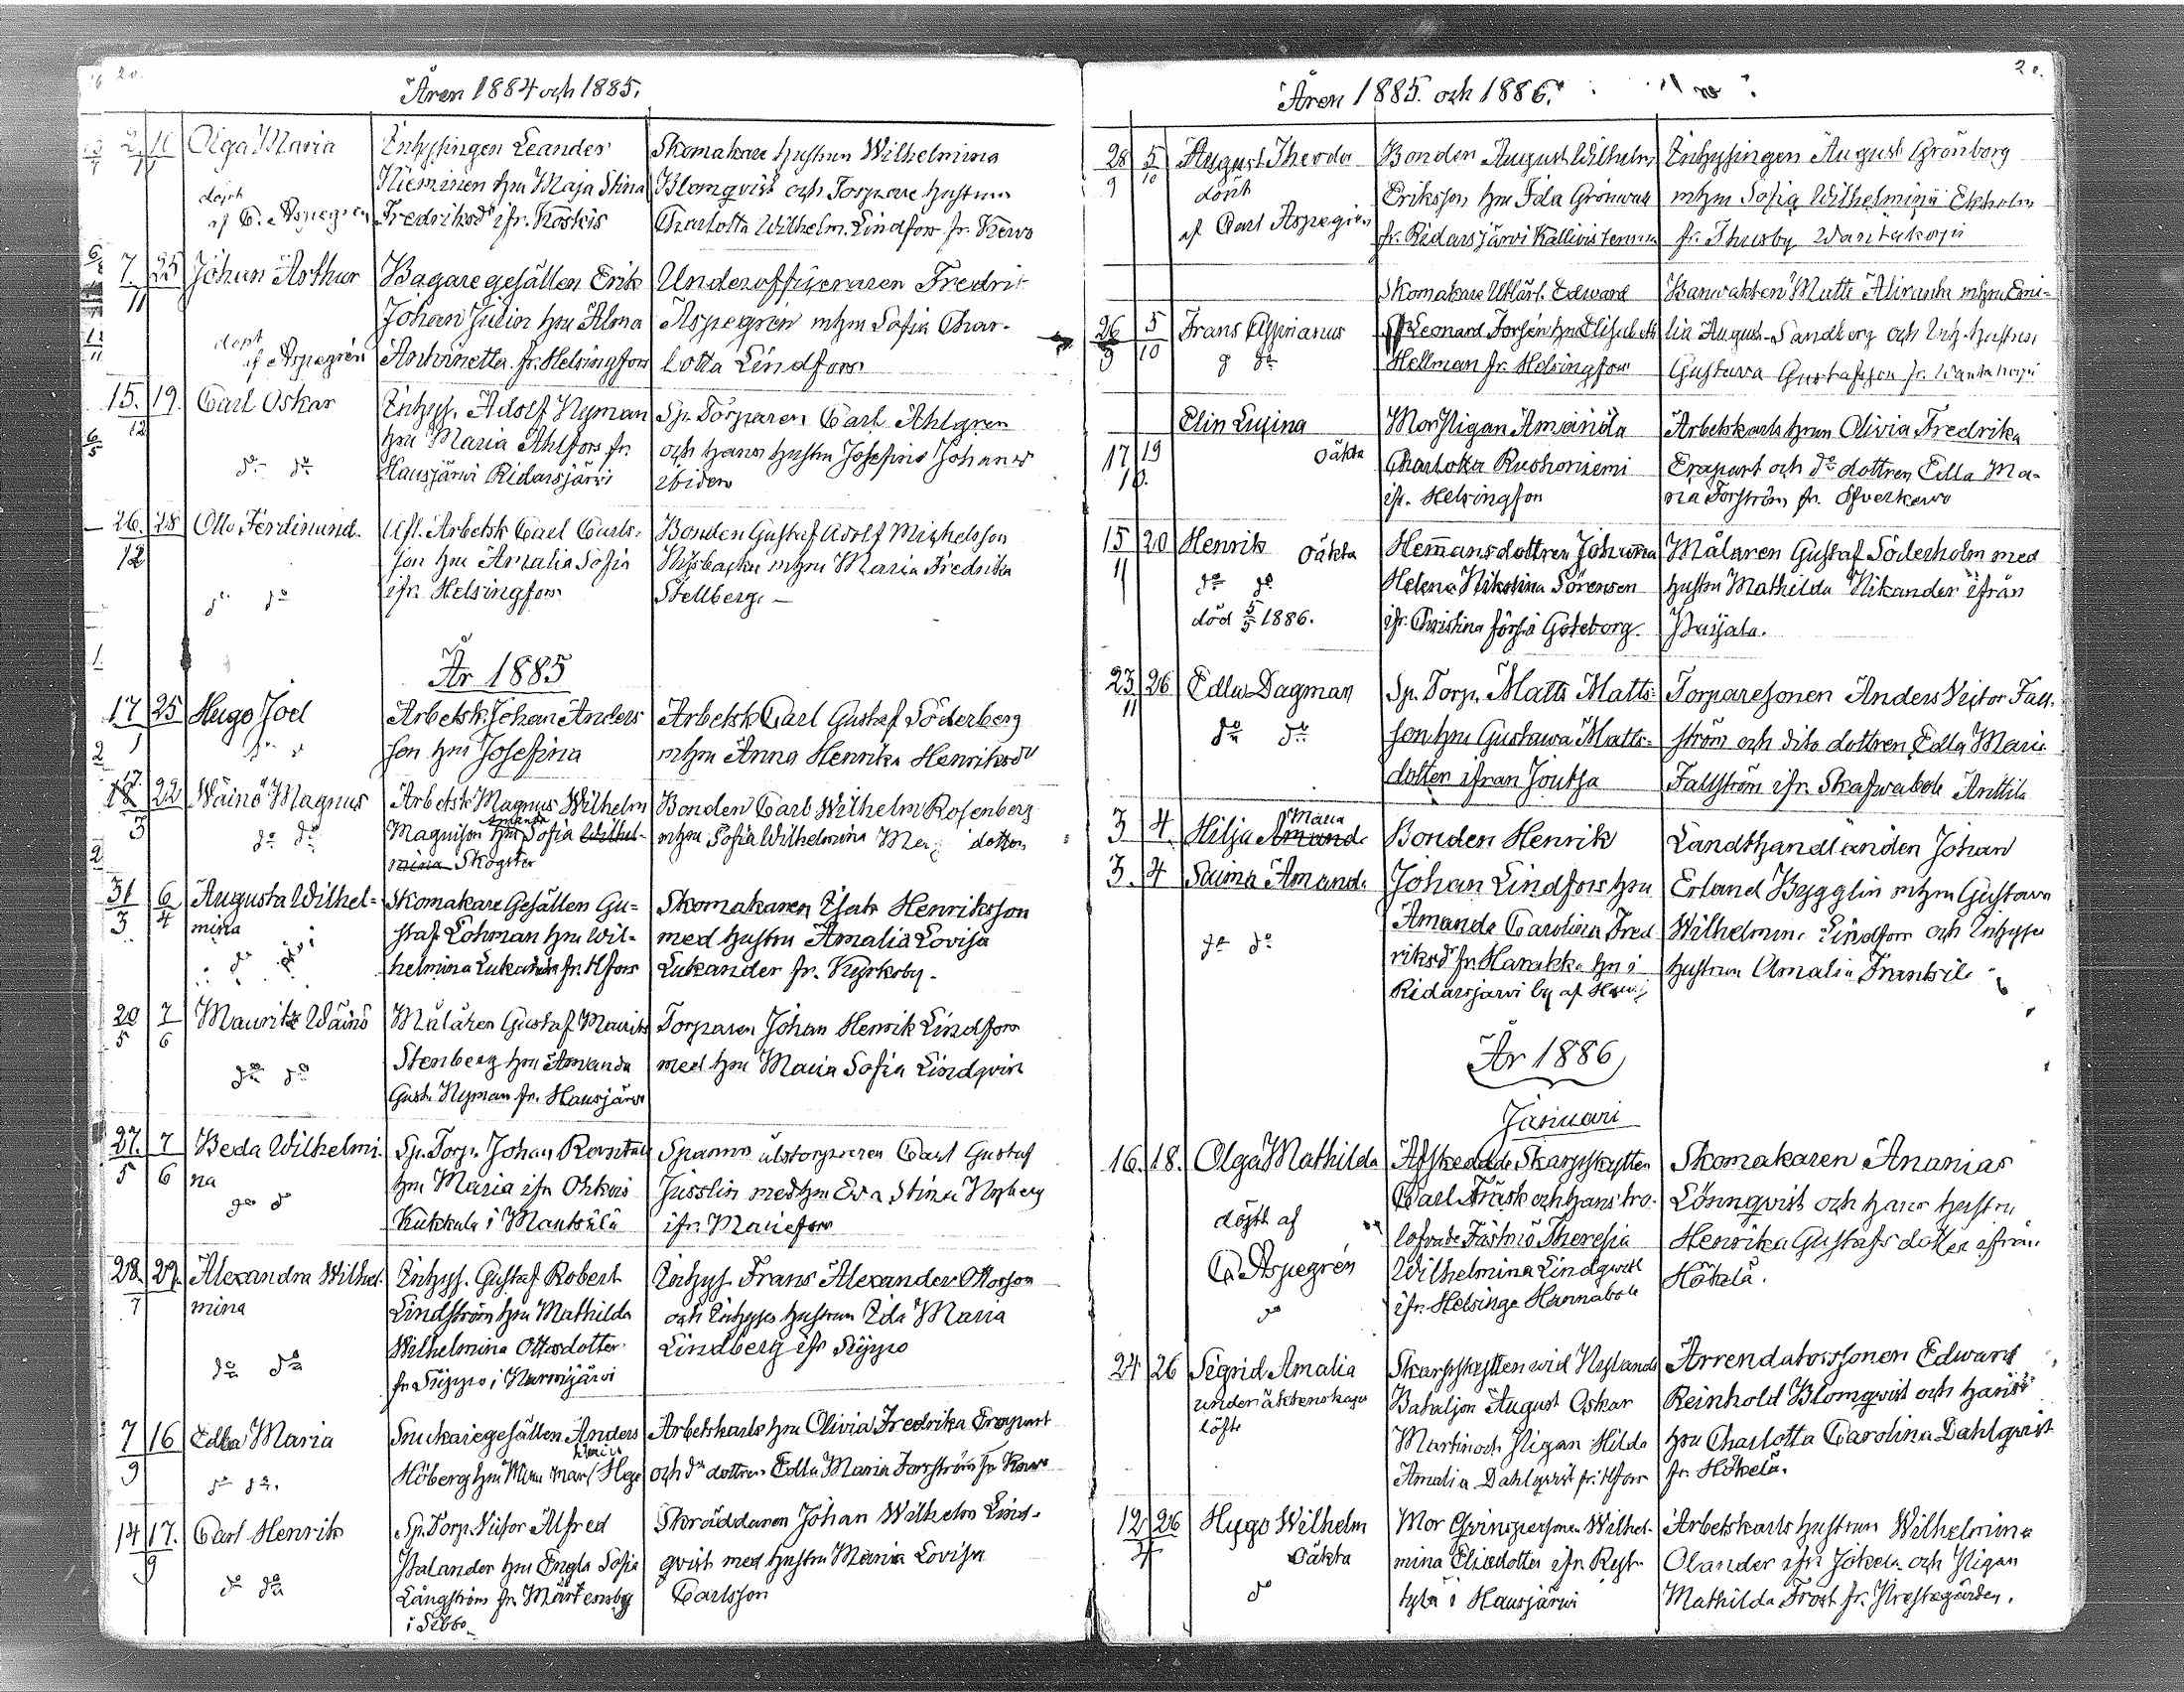 20.
Åren 1884 och 1885.
2. 11 Olga Maria
döpt
af C. Aspegren
Inhysingen Leander
Nieminen hru Maja Stina
Fredriksdr ifr. Koskis
Skomakare hustrun Wilhelmina
Blomqvist och Torpare hustrun
Charlotta Wilhelm. Lindfors fr. Kervo
7 25 Johan Arthur
11
döpt
af Aspegrén
Bagaregesällen Erik
Johan Julin hru Alma
Antoinetta fr. Helsingfors
Underofficeraren Fredrik
Aspegrén mhru Sofia Char-
lotta Lindfors
15. 19. Carl Oskar
12
do do
Inhys. Adolf Nyman
hru Maria Ahlfors fr.
Hausjärvi Ridasjärvi
Sp. Torparen Carl Ahlgren
och hans hustru Josefina Johansdr
ibidem
26. 28 Otto Ferdinand.
12
do do
Afl. Arbetsk Carl Carls-
son hru Amalia Sofia
ifr. Helsingfors
Bonden Gustaf Adolf Michelsson
mhru Maria Fredrika
Stellberg.
År 1885
17 25 Hugo Joel
1
Arbetsk. Johan Anders
son hru Josefina
Arbetsk Carl Gustaf Söderberg
mhru Anna Henrika Henriksdr
17
18 22 Wäinö Magnus
3
do do
Arbetsk Magnus Wilhelm
Amanda
Magnison hru Sofia Wilhel-
mina Skogster
Bonden Carl Wilhelm Rosenberg
mhru Sofia Wilhelmina dotter
31 6 Augusta Wilhel-
3 4 mina
Skomakare Gesällen Gu-
staf Lohman hru Wil-
helmina Lukander fr. Hfors
Skomakaren Isak Henriksson
med hustru Amalia Lovisa
Lukander fr. Kyrkoby.
20 7 Mauritz Wäinö
5 6
do do
Målaren Gustaf Mauritz
Stenberg hru Amanda
Gust. Nyman fr. Hausjärvi
Torparen Johan Henrik Lindfors
med hru Maria Sofia Lindqvist
27. 7 Beda Wilhelmi-
5 6 na
do do
Sp. Torp. Johan
hru Maria ifr Ohkois
Kukkula i Mäntsälä
Carl Gustaf
Jusslin med hru Eva Stina Nyberg
ifr. Mariefors
28. 29. Alexandra Wilhel-
7 mina
do do
Inhys. Gustaf Robert
Lindström hru Mathilda
Wilhelmina Ottosdotter
fr i Nurmijärvi
Inhys. Frans Alexander Ottoson
och Inhyses hustrun Ida Maria
Lindberg ifr
7 16 Edla Maria
9
do do.
Snickaregesällen Anders
Höberg hru
Arbetskarls hru Olivia Fredrika Erapart
och do dottren Edla Maria Forsström fr Kervo
14 17. Carl Henrik
9
do do
Sp. Torp. Victor Alfred
Palander hru Engla Sofia
Långström fr. Mårtensby
i Sibbo
Skräddaren Johan Wilhelm Lind-
qvist med hustru Maria Lovisa
Carlsson
20.
Åren 1885. och 1886.
28 5 August Theodor
9 10 döpt
af Carl Aspegrén
Bonden August Wilhelm
Eriksson hru Ida Grönwall
fr. Ridasjärvi
Inhysingen August Grönborg
mhru Sofia Wilhelmina Ekholm
fr. Thusby Wantakoski
26 5 Frans Cyprianus
9 10
do
Skomakare Utlärl. Edward
Leonard Forsén hru Elisabeth
Hellman fr. Helsingfors
Banwakten Matts Aliranta mhru Emi-
lia August. Sandberg och Inh. hustrun
Gustava Gustafsson fr. Wantakoski
Elin Lucina
17 19 oäkta
10.
Mor Pigan Amanda
Charlotta Ruohoniemi
ifr. Helsingfors
Arbetskarls hrun Olivia Fredrika
Erapart och do dottren Edla Ma-
ria Forström fr. Öfverkervo
15 20 Henrik oäkta
11 do do
död 5/5 1886.
Hemansdottren Johanna
Helena Nikolina Sörensen
ifr. Christina förs. i Göteborg.
Målaren Gustaf Söderholm med
hustru Mathilda Nikander ifrån
Paijala.
23 26 Edla Dagmar
11
do do
Sp. Torp. Matts Matts-
son hru Gustawa Matts-
dotter ifrån Joutsa
Torparesonen Anders Victor Fall-
ström och dito dottren Edla Maria
Fallström ifr. Skafvabole Anttila
Maria
3 4. Hilja Amanda
3. 4 Saima Amanda
do do
Bonden Henrik
Johan Lindfors hru
Amanda Carolina Fred
riksdr fr. Harakka hn i
Ridasjärvi by af
Landthandlanden Johan
Erland Bygglin mhru Gustava
Wilhelmina Lindfors och Inhyses
hustrun Amalia Frantsila
År 1886
Januari
16. 18. Olga Mathilda
döpt af
C. Aspegrén
do
Afskedade Skarpskytten
Carl Träsk och hans tro-
lofvade Fästmö Theresia
Wilhelmina Lindqwist
ifr. Helsinge Hannabole
Skomakaren Ananias
Lönnqvist och hans hustru
Henrika Gustafsdotter ifrån
Hökelä.
24 26 Sigrid Amalia
under äktenskaps
löfte
Skarpskytten wid Nylands
Bataljon August Oskar
Martin och Pigan Hilda
Amalia Dahlqvist fr. Hfors
Arrendatorssonen Edward
Reinhold Blomqvist och hans
hru Charlotta Carolina Dahlqvist
fr. Hökelä.
12 26 Hugo Wilhelm
oäkta
do
Mor Qvinspersonen Wilhel-
mina Eliædotter ifr.
kylä i Hausjärvi
Arbetskarls hustrun Wilhelmina
Olander ifr. Jokela och Pigan
Mathilda Frost fr. Prestegården.